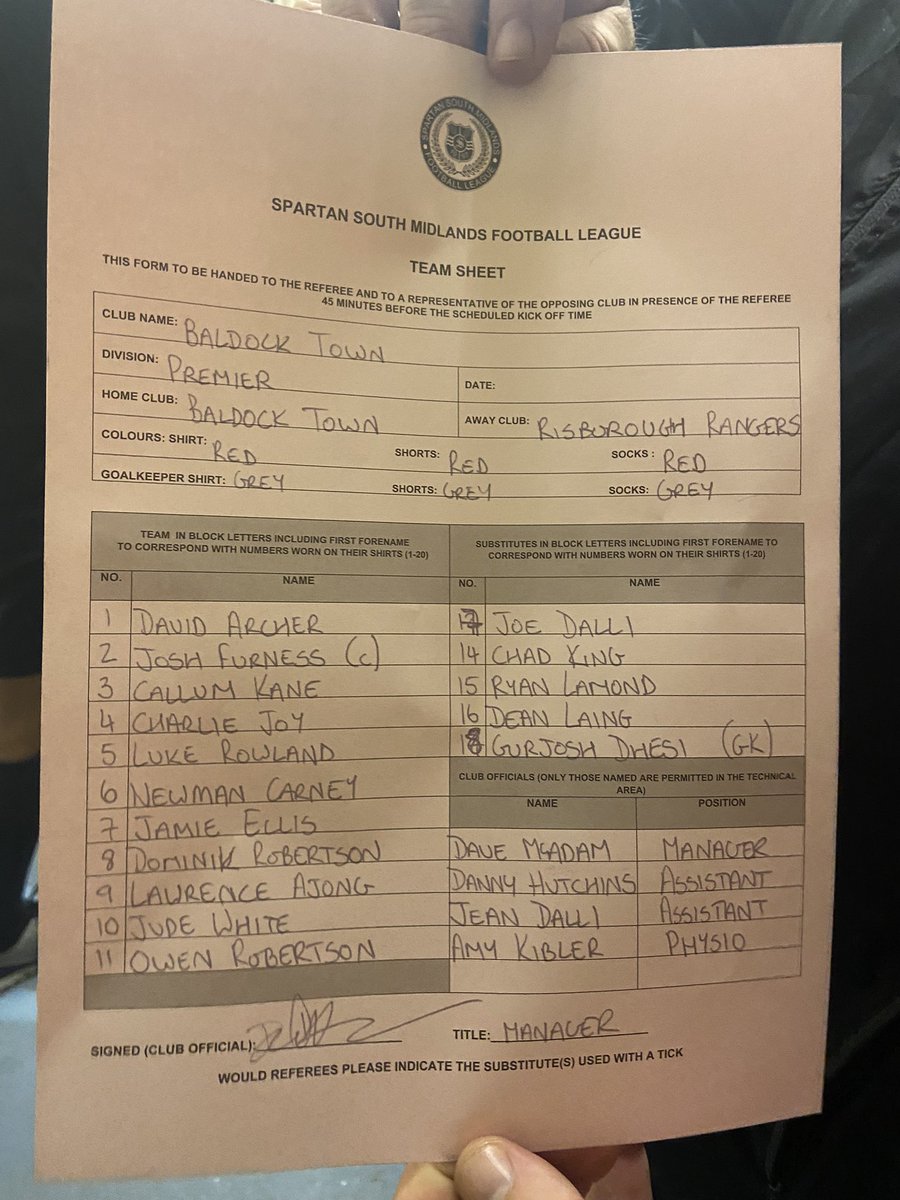 SPARTAN SOUTH MIDLANDS
FOOTBALL LEAGUE
SPARTAN SOUTH MIDLANDS FOOTBALL LEAGUE
TEAM SHEET
THIS FORM TO BE HANDED TO THE REFEREE AND TO A REPRESENTATIVE OF THE OPPOSING CLUB IN PRESENCE OF THE REFEREE
45 MINUTES BEFORE THE SCHEDULED KICK OFF TIME
CLUB NAME: BALDOCK TOWN
DIVISION: PREMIER DATE:
HOME CLUB: BALDOCK TOWN AWAY CLUB: RISBOROUGH RANGERS
COLOURS: SHIRT: RED SHORTS: RED SOCKS : RED
GOALKEEPER SHIRT: GREY SHORTS: GREY SOCKS: GREY
TEAM IN BLOCK LETTERS INCLUDING FIRST FORENAME
TO CORRESPOND WITH NUMBERS WORN ON THEIR SHIRTS (1-20)
NO. NAME
1 DAVID ARCHER
2 JOSH FURNESS (C)
3 CALLUM KANE
4 CHARLIE JOY
5 LUKE ROWLAND
6 NEWMAN CARNEY
7 JAMIE ELLIS
8 DOMINIK ROBERTSON
9 LAWRENCE AJONG
10 JUDE WHITE
11 OWEN ROBERTSON
SUBSTITUTES IN BLOCK LETTERS INCLUDING FIRST FORENAME TO
CORRESPOND WITH NUMBERS WORN ON THEIR SHIRTS (1-20)
NO. NAME
JOE DALLI
14 CHAD KING
15 RYAN LAMOND
16 DEAN LAING
18 GURJOSH DHESI (GK)
CLUB OFFICIALS (ONLY THOSE NAMED ARE PERMITTED IN THE TECHNICAL
AREA)
NAME POSITION
DAVE McADAM MANAGER
DANNY HUTCHINS ASSISTANT
JEAN DALLI ASSISTANT
AMY KIBLER PHYSIO
SIGNED (CLUB OFFICIAL): TITLE: MANAGER
WOULD REFEREES PLEASE INDICATE THE SUBSTITUTE(S) USED WITH A TICK